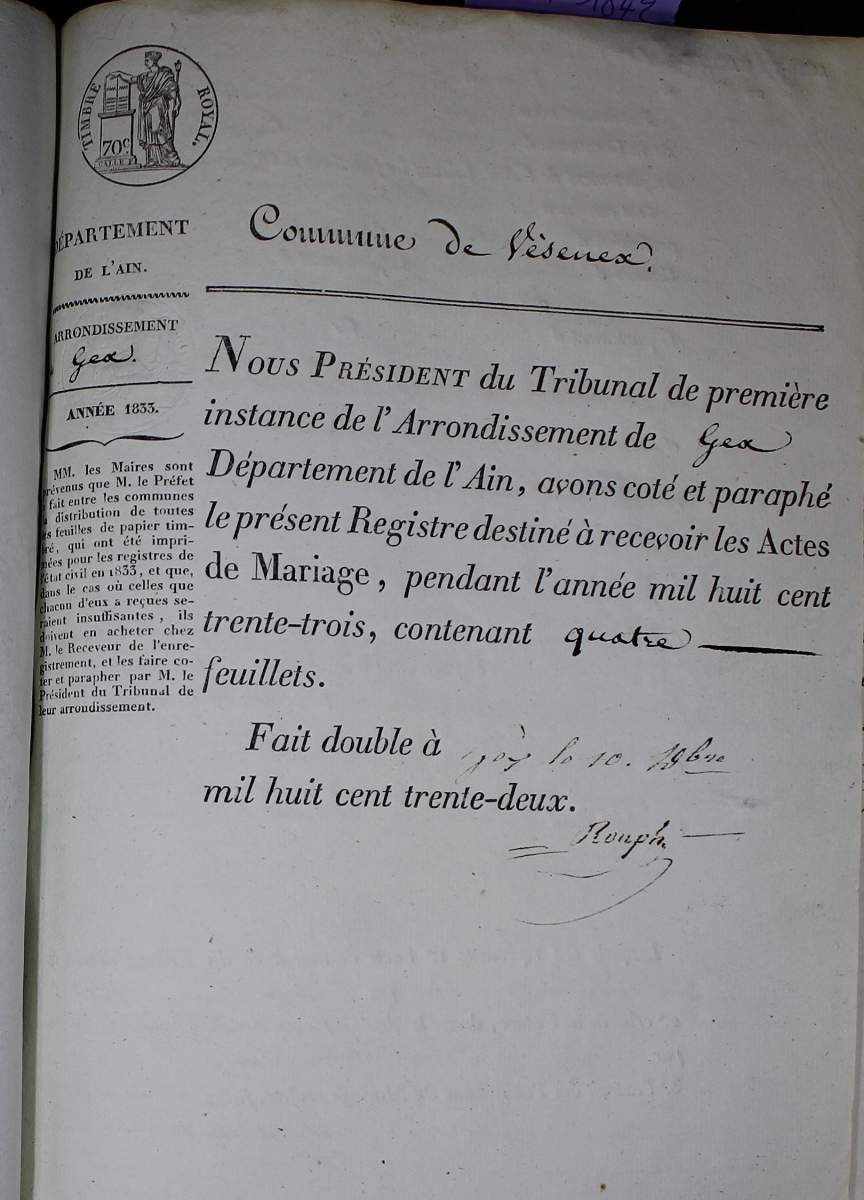 1842
TIMBRE ROYAL.
70c
DÉPARTEMENT
DE L'AIN.
ARRONDISSEMENT
Gex.
ANNÉE 1833.
MM. les Maires sont
prévenus que M. le Préfet
fait entre les communes
la distribution de toutes
les feuilles de papier tim-
bré, qui ont été impri-
mées pour les registres de
l'état civil en 1833, et que,
dans le cas où celles que
chacun d'eux a reçues se-
raient insuffisantes, ils
doivent en acheter chez
M. le Receveur de l'enre-
gistrement, et les faire co-
ter et parapher par M. le
Président du Tribunal de
leur arrondissement.
Commune de Vésenex.
NOUS PRÉSIDENT du Tribunal de première
instance de l'Arrondissement de Gex
Département de l'Ain, avons coté et paraphé
le présent Registre destiné à recevoir les Actes
de Mariage, pendant l'année mil huit cent
trente-trois, contenant quatre
feuillets.
Fait double à Gex le 10.
mil huit cent trente-deux.